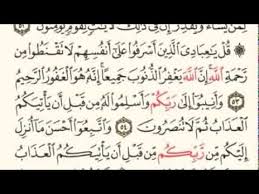 لِمَن يَشَاءُ وَيَقْدِرُ إِنَّ فِي ذَٰلِكَ لَآيَاتٍ لِّقَوْمٍ يُؤْمِنُونَ ٥٢
قُلْ يَٰعِبَادِيَ الَّذِينَ أَسْرَفُوا عَلَىٰ أَنفُسِهِمْ لَا تَقْنَطُوا مِن
رَّحْمَةِ اللَّهِ إِنَّ اللَّهَ يَغْفِرُ الذُّنُوبَ جَمِيعًا إِنَّهُ هُوَ الْغَفُورُ الرَّحِيمُ
٥٣ وَأَنِيبُوا إِلَىٰ رَبِّكُمْ وَأَسْلِمُوا لَهُ مِن قَبْلِ أَن يَأْتِيَكُمُ
الْعَذَابُ ثُمَّ لَا تُنصَرُونَ ٥٤ وَاتَّبِعُوا أَحْسَنَ مَا أُنزِلَ
إِلَيْكُم مِّن رَّبِّكُم مِّن قَبْلِ أَن يَأْتِيَكُمُ الْعَذَابُ